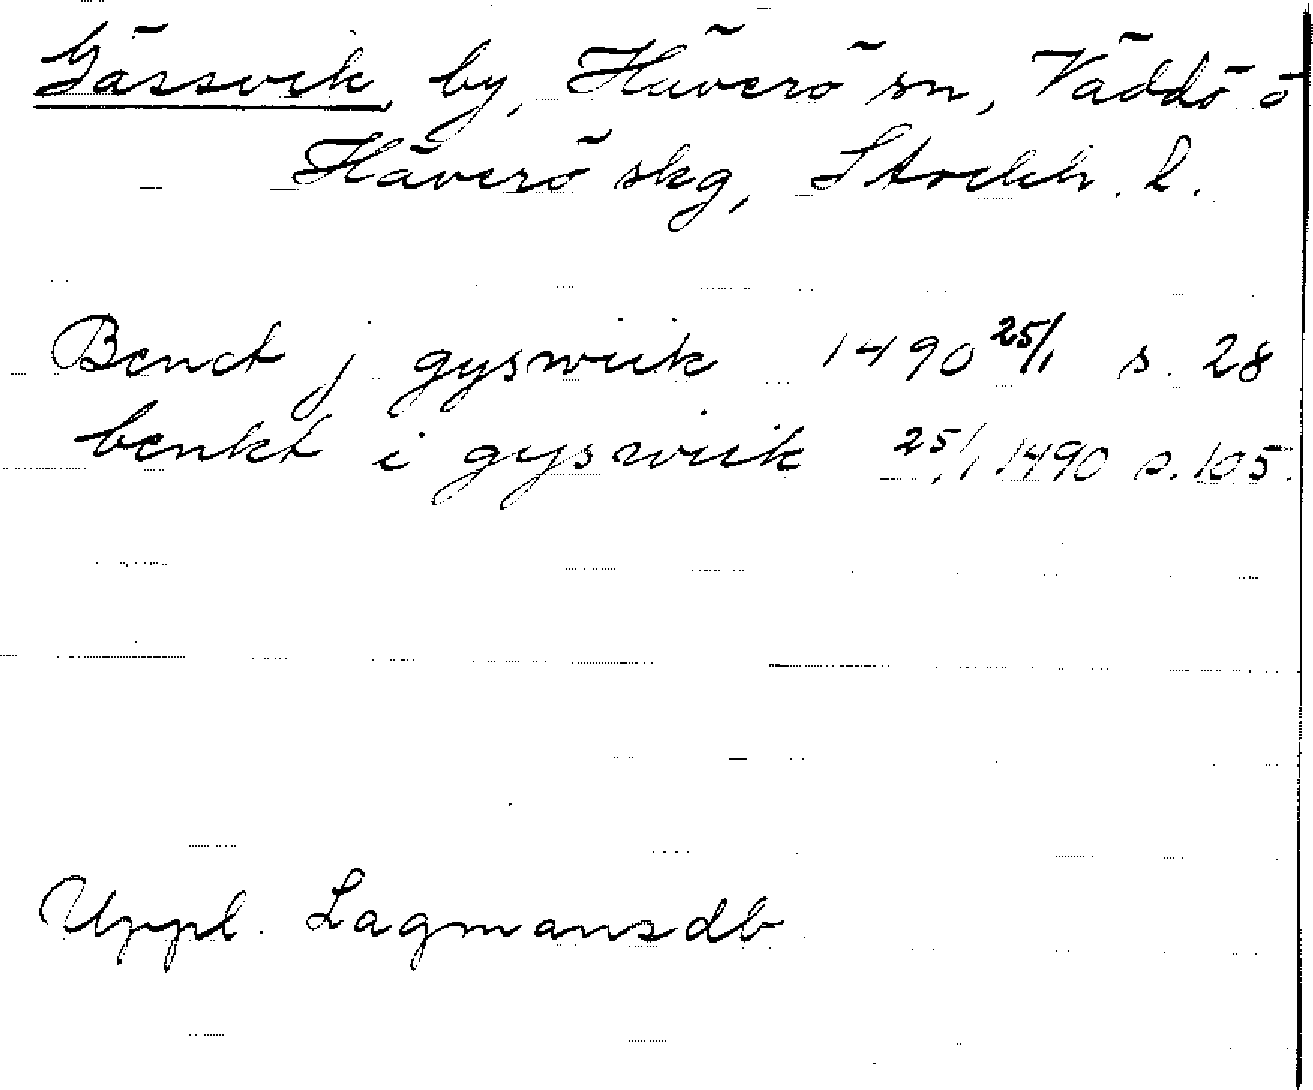 Gässvik, by, Häverö sn, Väddö o
Häverö skg, Stockh. l.
Benct j gyswiik 1490 25/1 s. 28
benkt i gyswiik 25/1 1490 s. 105.
Uppl. Lagmansdb